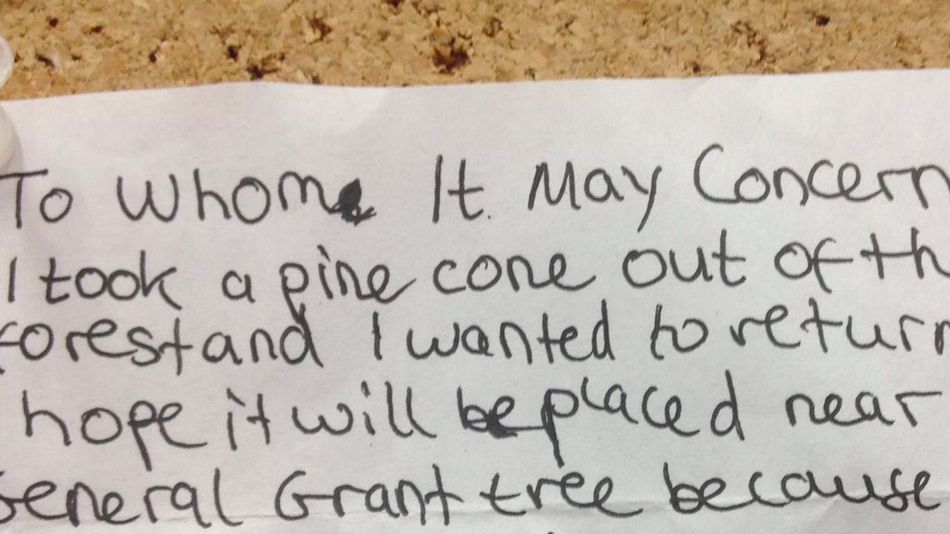 To Whom It May Concern
I took a pine cone out of th
forest and I wanted to return
hope it will be placed near
General Grant tree because